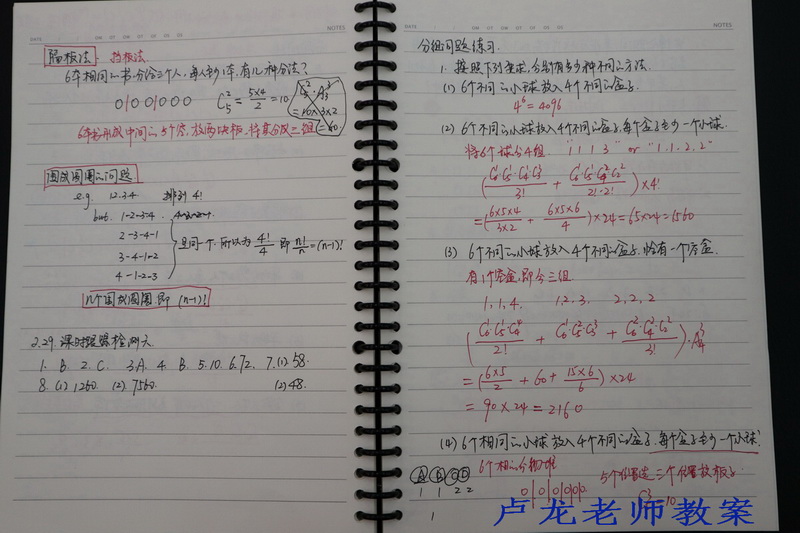 DATE
NOTES
隔板法 挡板法
6本相同的书,分给三个人,每人至少1本,有几种分法?
0|00|000 C₅² = 5×4/2 = 10 C₅²·A₃³ = 10×3×2 = 60
6本书形成中间的5个空,放两块板,将其分成三组
围成圆周的问题
e.g. 1234 排列 4!
but 1-2-3-4
2-3-4-1
3-4-1-2
4-1-2-3
是同一个,所以为 4!/4 即 n!/n = (n-1)!
n个围成圆周即 (n-1)!
2.29. 课时跟踪检测六
1. B. 2. C. 3. A. 4. B. 5. 10. 6. 72. 7. (1) 58.
8. (1) 1260. (2) 7560. (2) 48.
DATE
NOTES
分组问题练习.
1. 按照下列要求,分别有多少种不同的方法.
(1) 6个不同的小球放入4个不同的盒子.
4⁶ = 4096
(2) 6个不同的小球放入4个不同的盒子,每个盒子至少一个小球.
将6个球分4组. "1 1 1 3" or "1.1.2.2"
(C₆¹·C₅¹·C₄¹·C₃³/3! + C₆¹C₅¹C₄²C₂²/2!·2!)×4!
=(6×5×4/3×2 + 6×5×6/4)×24=65×24=1560
(3) 6个不同的小球放入4个不同的盒子,恰有一个空盒.
有1个空盒,即分三组
1, 1, 4. 1. 2. 3. 2, 2, 2
(C₆¹·C₅¹·C₄⁴/2! + C₆¹C₅²C₃³ + C₆²C₄²C₂²/3!)·A₄³
=(6×5/2 + 60 + 15×6/6)×24
= 90×24 = 2160
(4) 6个相同的小球放入4个不同的盒子,每个盒子至少一个小球.
A B C D 6个相同的分物堆
1 1 2 2 0|0|0|0 0 0 5个位置选三个位置放板子
1
卢龙老师教案